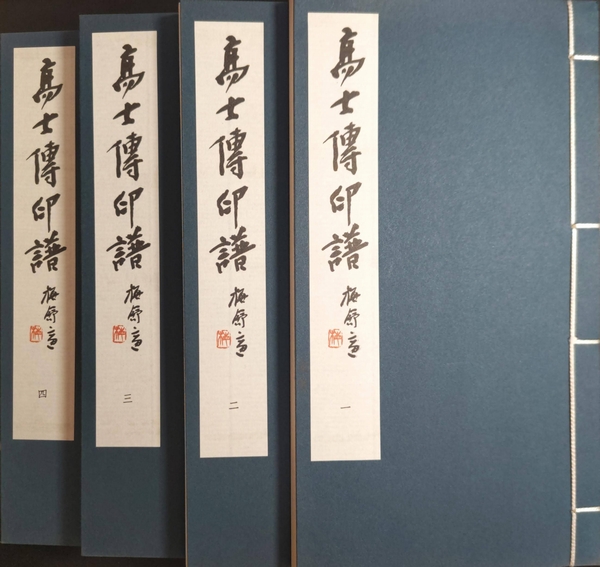 高士傳印譜
梅舒適
一
高士傳印譜
梅舒適
二
高士傳印譜
梅舒適
三
高士傳印譜
梅舒適
四